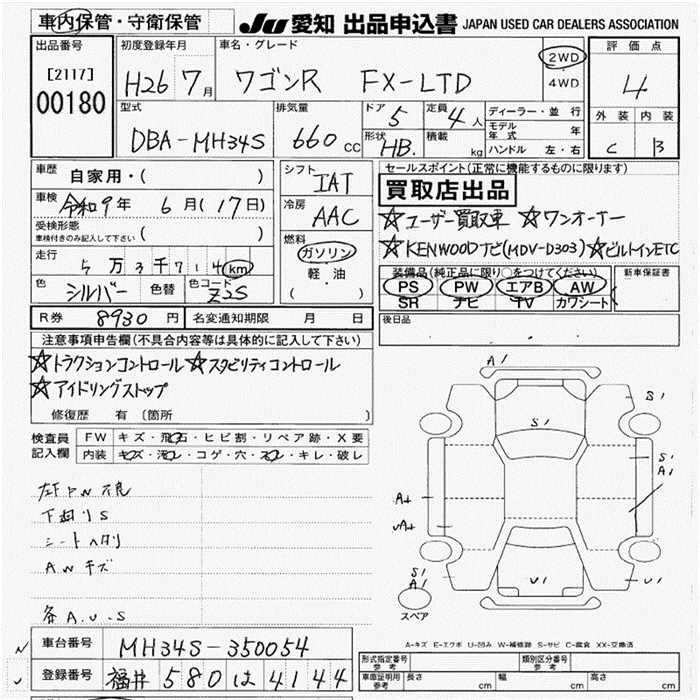 車内保管・守衛保管
JU 愛知 出品申込書 JAPAN USED CAR DEALERS ASSOCIATION
出品番号
[2117]
00180
初度登録年月
H26 7月
車名・グレード
ワゴンR FX-LTD
2WD
・
4WD
評価点
4
外装 内装
C B
型式
DBA-MH34S
排気量
660 CC
ドア 5
定員 4人
形状 HB.
積載 kg
ディーラー・並行
モデル年式 年
ハンドル 左・右
車歴
自家用・( )
車検
令和9年 6月(17日)
受検形態
車検付きのみ記入して下さい ( )
走行
5万3千714km
色
シルバー
色替
色コード
Z2S
シフト
IAT
冷房
AAC
燃料
ガソリン
軽油
( )
セールスポイント(正常に機能するものに限ります)
買取店出品
☆ユーザー買取車 ☆ワンオーナー
☆KENWOODナビ(MDV-D303)☆ビルトインETC
装備品(純正品に限り○をつけてください)
PS PW エアB AW
SR ナビ TV カワシート
新車保証書
R券 8930円
名変通知期限 月 日
後日品
注意事項申告欄(不具合内容等は具体的に記入して下さい)
☆トラクションコントロール☆スタビリティコントロール
☆アイドリングストップ
修復歴 有 〔箇所 〕
検査員記入欄
FW キズ・飛石・ヒビ割・リペア跡・X要
内装 キズ・汚れ・コゲ・穴・スレ・キレ・破レ
左F PW 不良
下廻りS
シートヘタリ
AWキズ
各A.U.S
A1
S1
S1
S1
A1
A+
U1
U1
S1
A1
スペア
A-キズ E-エクボ U-凹み W-補修跡 S-サビ C-腐食 XX-交換済
車台番号 MH34S-350054
登録番号 福井 580 は 4144
形式指定番号 参考
類別区分番号 参考
車庫証明用 参考
長さ cm 幅 cm 高さ cm